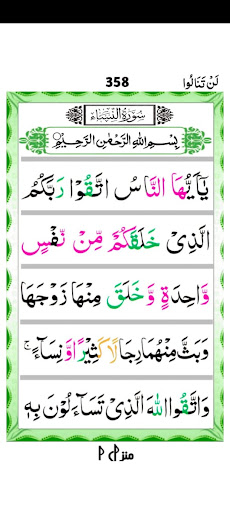 لَنْ تَنَالُوا 358
سُوْرَةُ النِّسَاء
بِسْمِ اللهِ الرَّحْمٰنِ الرَّحِيْمِ
يٰۤاَيُّهَا النَّاسُ اتَّقُوْا رَبَّكُمُ
الَّذِىْ خَلَقَكُمْ مِّنْ نَّفْسٍ
وَّاحِدَةٍ وَّخَلَقَ مِنْهَا زَوْجَهَا
وَبَثَّ مِنْهُمَا رِجَالًا كَثِيْرًا وَّنِسَآءً ۚ
وَاتَّقُوا اللهَ الَّذِىْ تَسَآءَلُوْنَ بِهٖ